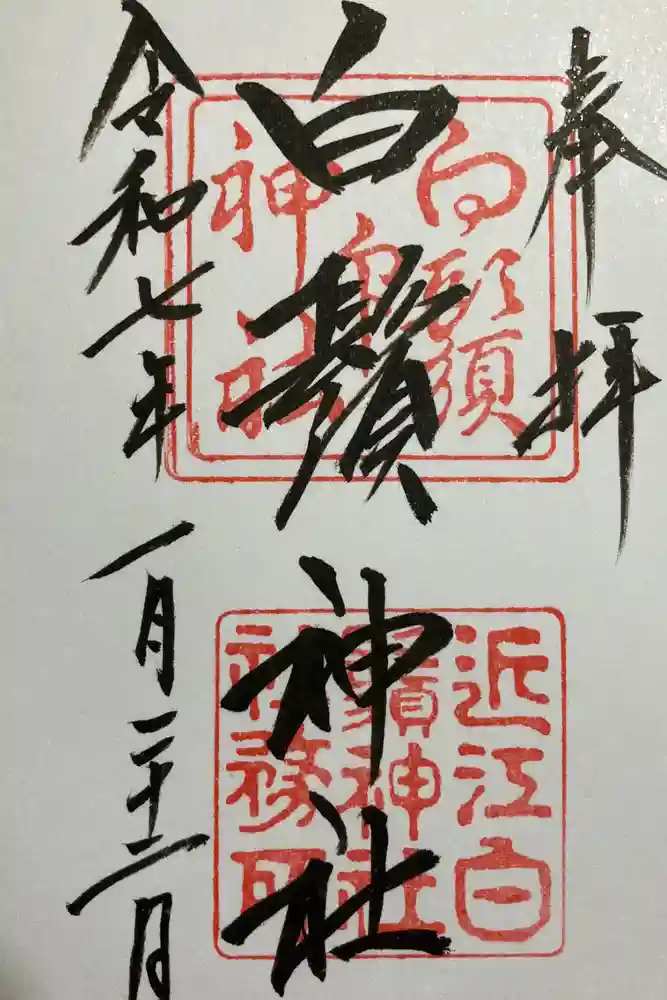 奉拝
白鬚神社
令和七年一月二十二日
神社
近江白
鬚神社
社務所